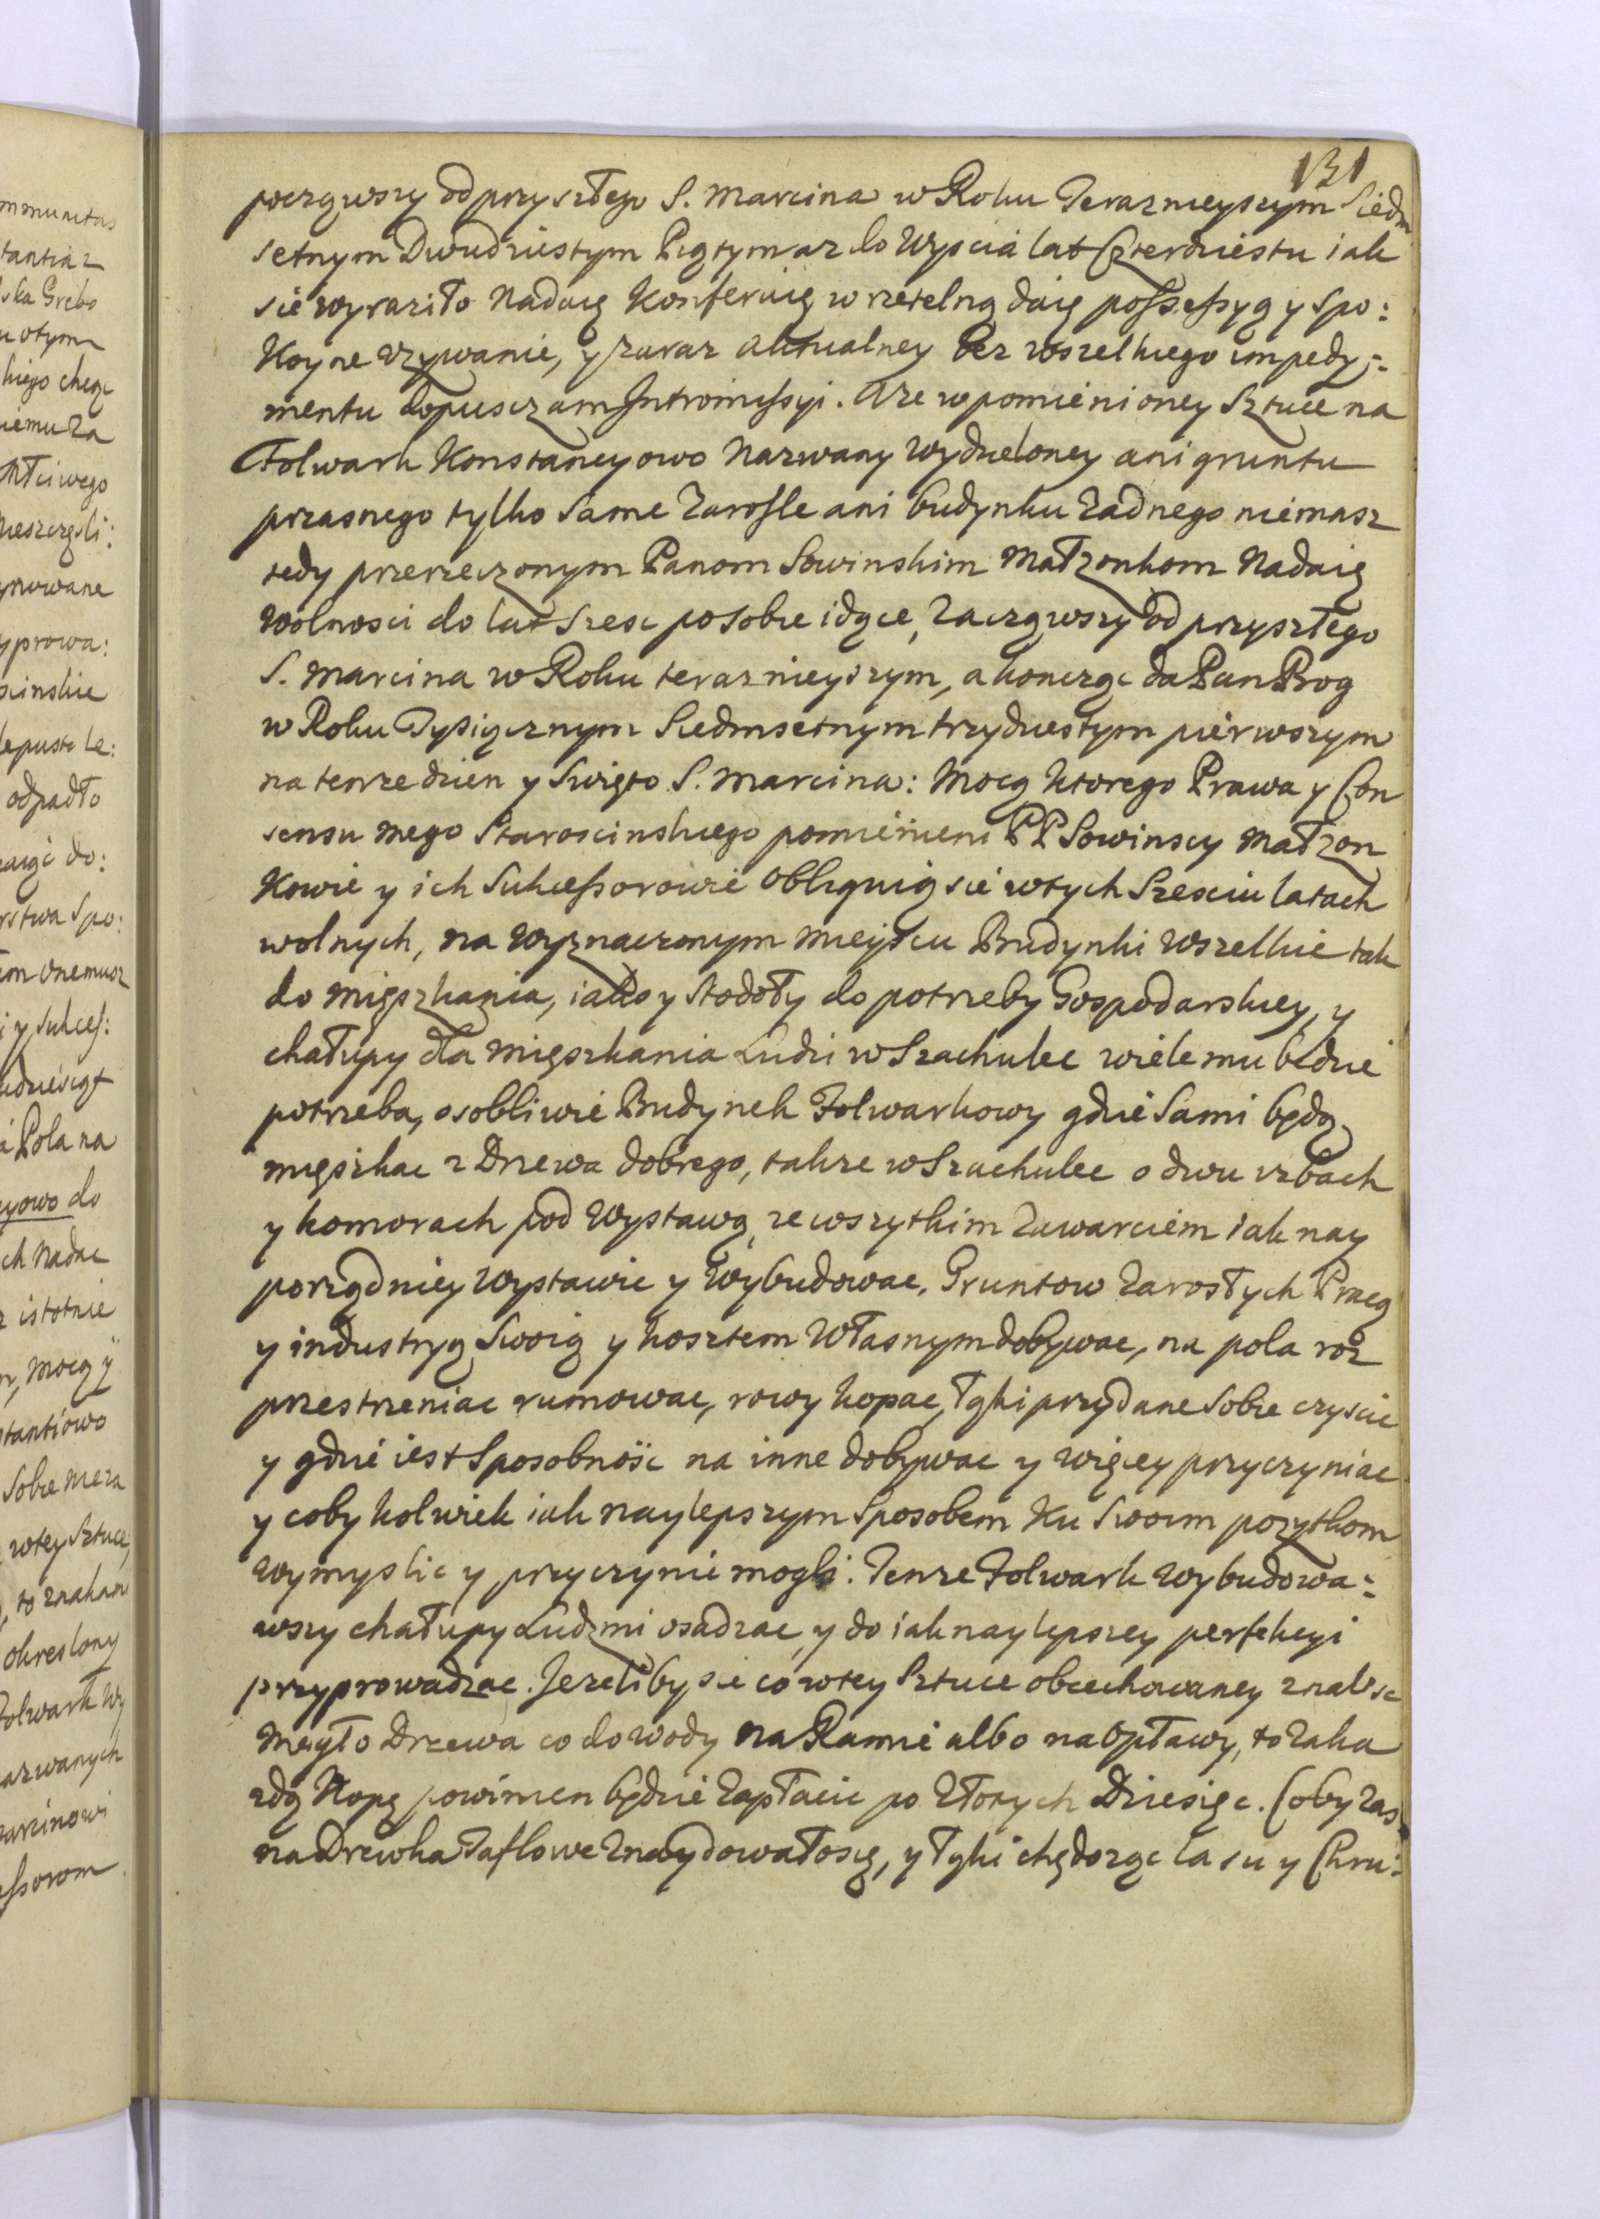 131
począwszy od przyszłego S. Marcina w Roku Teraznieyszym Siedm
setnym Dwudziestym Piątym az do Wyscia lat Czterdziestu iak
sie wyraziło Nadaię Konferuię w rzetelną daię possessyą y spo:
koyne vzywanie, y zaraz aktualney bez wszelkiego impedy:
mentu dopusczam Intromissyi. A ze w pomienioney Sztuce na
Folwark Konstancyowo Nazwany Wydzieloney ani gruntu
przasnego tylko same Zarosle ani budynku Zadnego niemasz
tedy przerzeczonym Panom Sowinskim Małzonkom Nadaię
Wolnosci do lat szesc po sobie idące, Zacząwszy od przyszłego
S. Marcina w Roku teraznieyszym, a koncząc da Pan Bog
w Roku Tysiącznym Siedmsetnym trzydziestym pierwszym
na tenze dzien y Swięto S. Marcina: Mocą ktorego Prawa y Con
sensu mego Staroscinskiego pomienieni PP Sowinscy Małzon
kowie y ich Sukcessorowie obliguią sie w tych Szesciu latach
wolnych, na Wyznaczonym Mieyscu Budynki Wszelkie tak
do mięszkania, iako y stodoły do potrzeby Gospodarskiey, y
chałupy dla mięszkania Ludzi w Szachulec wiele mu będzie
potrzeba, osobliwie Budynek Folwarkowy gdzie Sami będą
mięszkac z Drzewa dobrego, takze w Szachulec o dwu izbach
y komorach pod Wystawą, ze wszytkim Zawarciem iak nay
porządniey Wystawic y Wybudowac. Gruntow Zarosłych Pracą
y industryą Swoią y kosztem Własnym dobywac, na pola roz
przestrzeniac rumowac, rowy kopac, Łąki przydane sobie czyscic
y gdzie iest Sposobnosc na inne dobywac y więcey przyczyniac
y coby kolwiek iak naylepszym Sposobem Ku Swoim pozytkom
Wymyslic y przyczynic mogli. Tenze Folwark Wybudowa:
wszy chałupy Ludzmi osadzac y do iak naylepszey perfekcyi
przyprowadzac. Jezeliby sie co w tey Sztuce obcechowaney znalesc
Mogło Drzewa co do wody na Ramie albo na Opławy, to Zaka
zdą Kopę powinien będzie Zapłacic po Złotych Dziesięc. Coby Zas
na Drewka Taflowe Znaydowało się, y Łąki chędoząc Lasu y Chru: